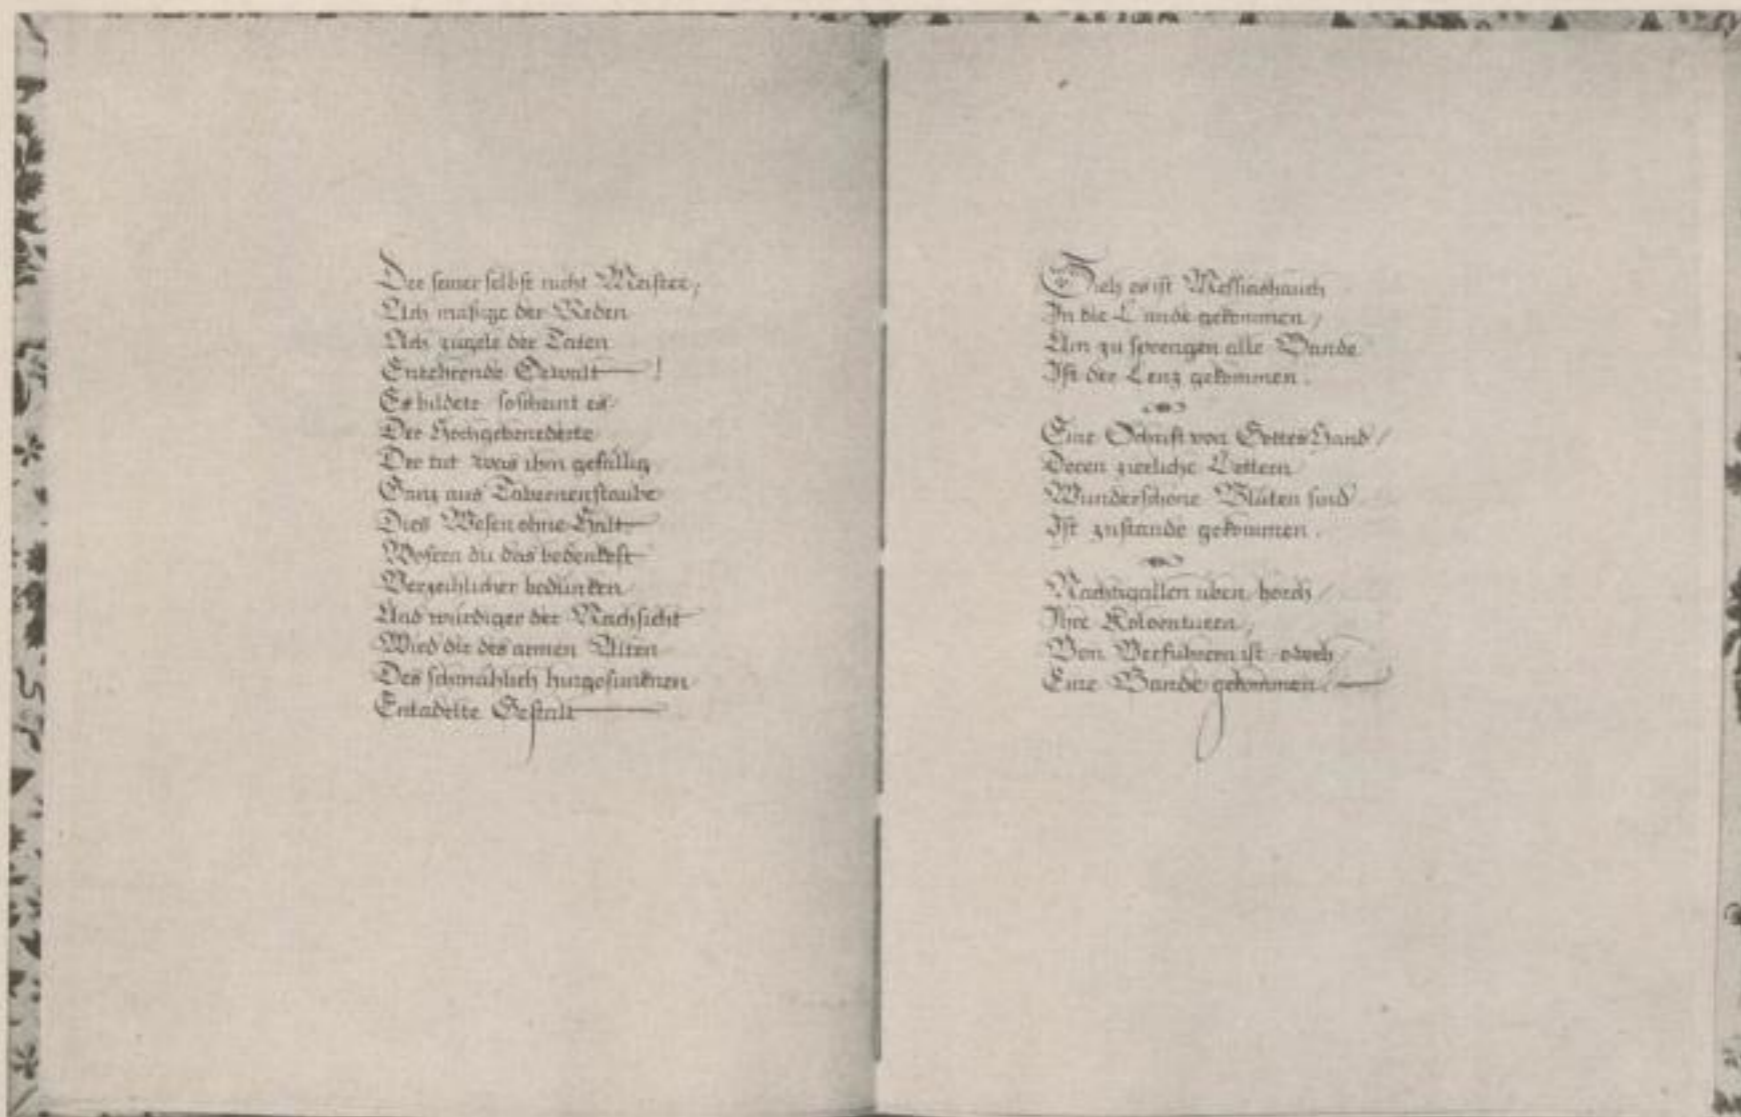 Der seiner selbst nicht Meister,
Ach mäßige der Reden
Ach zügele der Taten
Entehrende Gewalt!
Es bildete so scheint es
Der Hochgebenedeite
Der tut was ihm gefällig
Ganz aus Tabernenstaube
Dies Wesen ohne Halt
Wofern du das bedenkest
Verzeihlicher bedünken
Und würdiger der Nachsicht
Wird dir des armen Alten
Des schmählich hingesunknen
Entadelte Gestalt
Sieh es ist Messiashauch
In die Lande gekommen /
Um zu sprengen alle Bande
Ist der Lenz gekommen.
Eine Schrift von Gottes Hand /
Deren zierliche Lettern
Wunderschöne Blüten sind
Ist zustande gekommen.
Nachtigallen üben horch /
Ihre Koloraturen,
Von Verführern ist
Eine Bande gekommen.